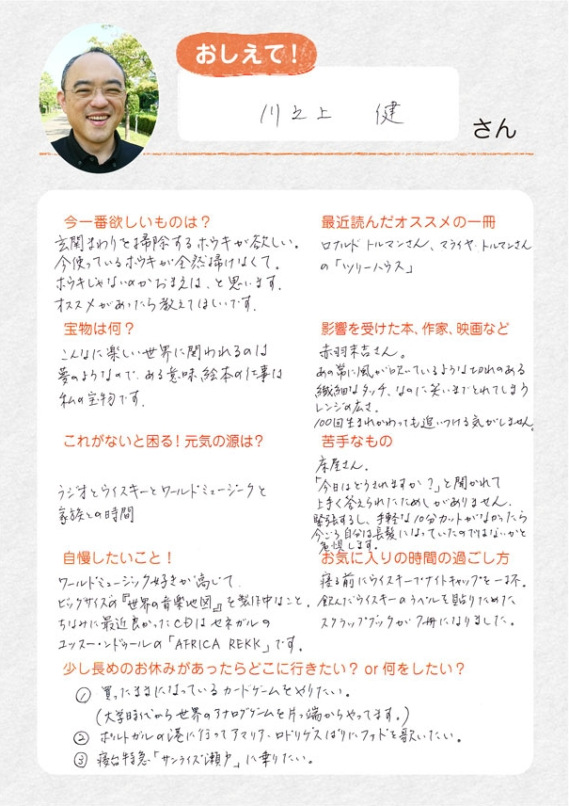 おしえて！
川之上 健
さん
今一番欲しいものは？
玄関まわりを掃除するホウキが欲しい。
今使っているホウキが全然掃けなくて。
ホウキじゃないのかおまえは、と思います。
オススメがあったら教えてほしいです。
最近読んだオススメの一冊
ロナルド・トルマンさん、マライヤ・トルマンさん
の「ツリーハウス」
宝物は何？
こんなに楽しい世界に関われるのは
夢のようなので、ある意味、絵本の仕事は
私の宝物です。
影響を受けた本、作家、映画など
赤羽末吉さん。
あの常に風が吹いているような切れのある
繊細なタッチ、なのに笑いまでとれてしまう
レンジの広さ。
100回生まれかわっても追いつける気がしません。
これがないと困る！元気の源は？
ラジオとウイスキーとワールドミュージックと
家族との時間
苦手なもの
床屋さん。
「今日はどうされますか？」と聞かれて
上手く答えられたためしがありません。
緊張するし、手軽な10分カットがなかったら
今ごろ自分は長髪になっていたのではないかと
危惧します。
自慢したいこと！
ワールドミュージック好きが高じて、
ビッグサイズの『世界の音楽地図』を製作中なこと。
ちなみに最近良かったCDはセネガルの
ユッスー・ンドゥールの「AFRICA REKK」です。
お気に入りの時間の過ごし方
寝る前にウイスキーでナイトキャップを一杯。
飲んだウイスキーのラベルを貼りためた
スクラップブックが7冊になりました。
少し長めのお休みがあったらどこに行きたい？ or 何をしたい？
① 買ったままになっているカードゲームをやりたい。
（大学時代から世界のアナログゲームを片っ端からやってます。）
② ポルトガルの港に行ってアマリア・ロドリゲスばりにファドを歌いたい。
③ 寝台特急「サンライズ瀬戸」に乗りたい。